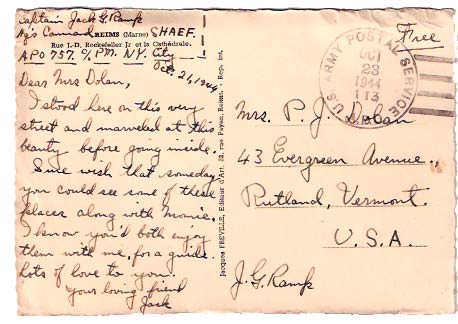 Captain Jack G. Ramp
Hq's Command SHAEF.
REIMS (Marne)
Rue J.-D. Rockefeller Jr et la Cathédrale.
APO 757. c/o P.M. N.Y. City
Oct. 21, 1944
Dear Mrs Dolan,
I stood here on this very
street and marveled at this
beauty before going inside.
Sure wish that someday
you could see some of these
places along with Monie.
I know you'd both enjoy
them with me, for a guide.
Lots of love to you.
Your loving friend
Jack
Jacques FREVILLE, Editeur d'Art, rue Payen, Reims. - Rep. int.
Free
U.S. ARMY POSTAL SERVICE
OCT
23
1944
113
Mrs. P. J. Dolan
43 Evergreen Avenue.,
Rutland, Vermont.
U.S.A.
J. G. Ramp